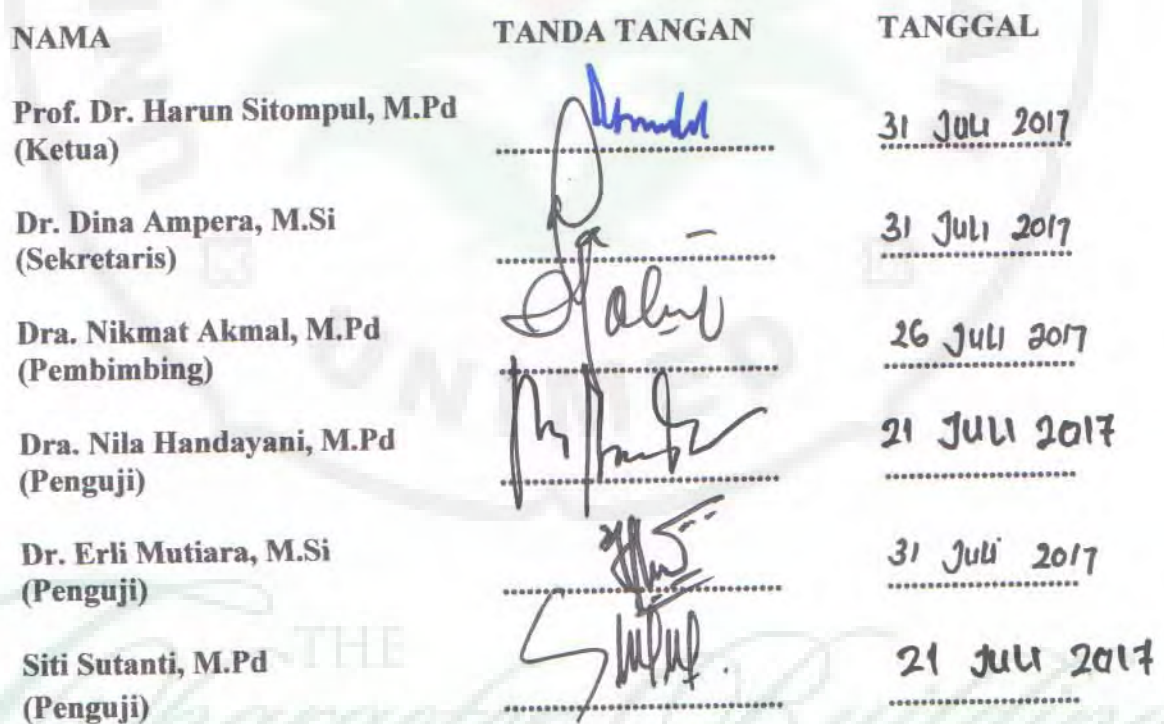 NAMA TANDA TANGAN TANGGAL
Prof. Dr. Harun Sitompul, M.Pd
(Ketua) 31 Juli 2017
Dr. Dina Ampera, M.Si
(Sekretaris) 31 Juli 2017
Dra. Nikmat Akmal, M.Pd
(Pembimbing) 26 Juli 2017
Dra. Nila Handayani, M.Pd
(Penguji) 21 JULI 2017
Dr. Erli Mutiara, M.Si
(Penguji) 31 Juli 2017
THE
Siti Sutanti, M.Pd
(Penguji) 21 JULI 2017
UNIMED